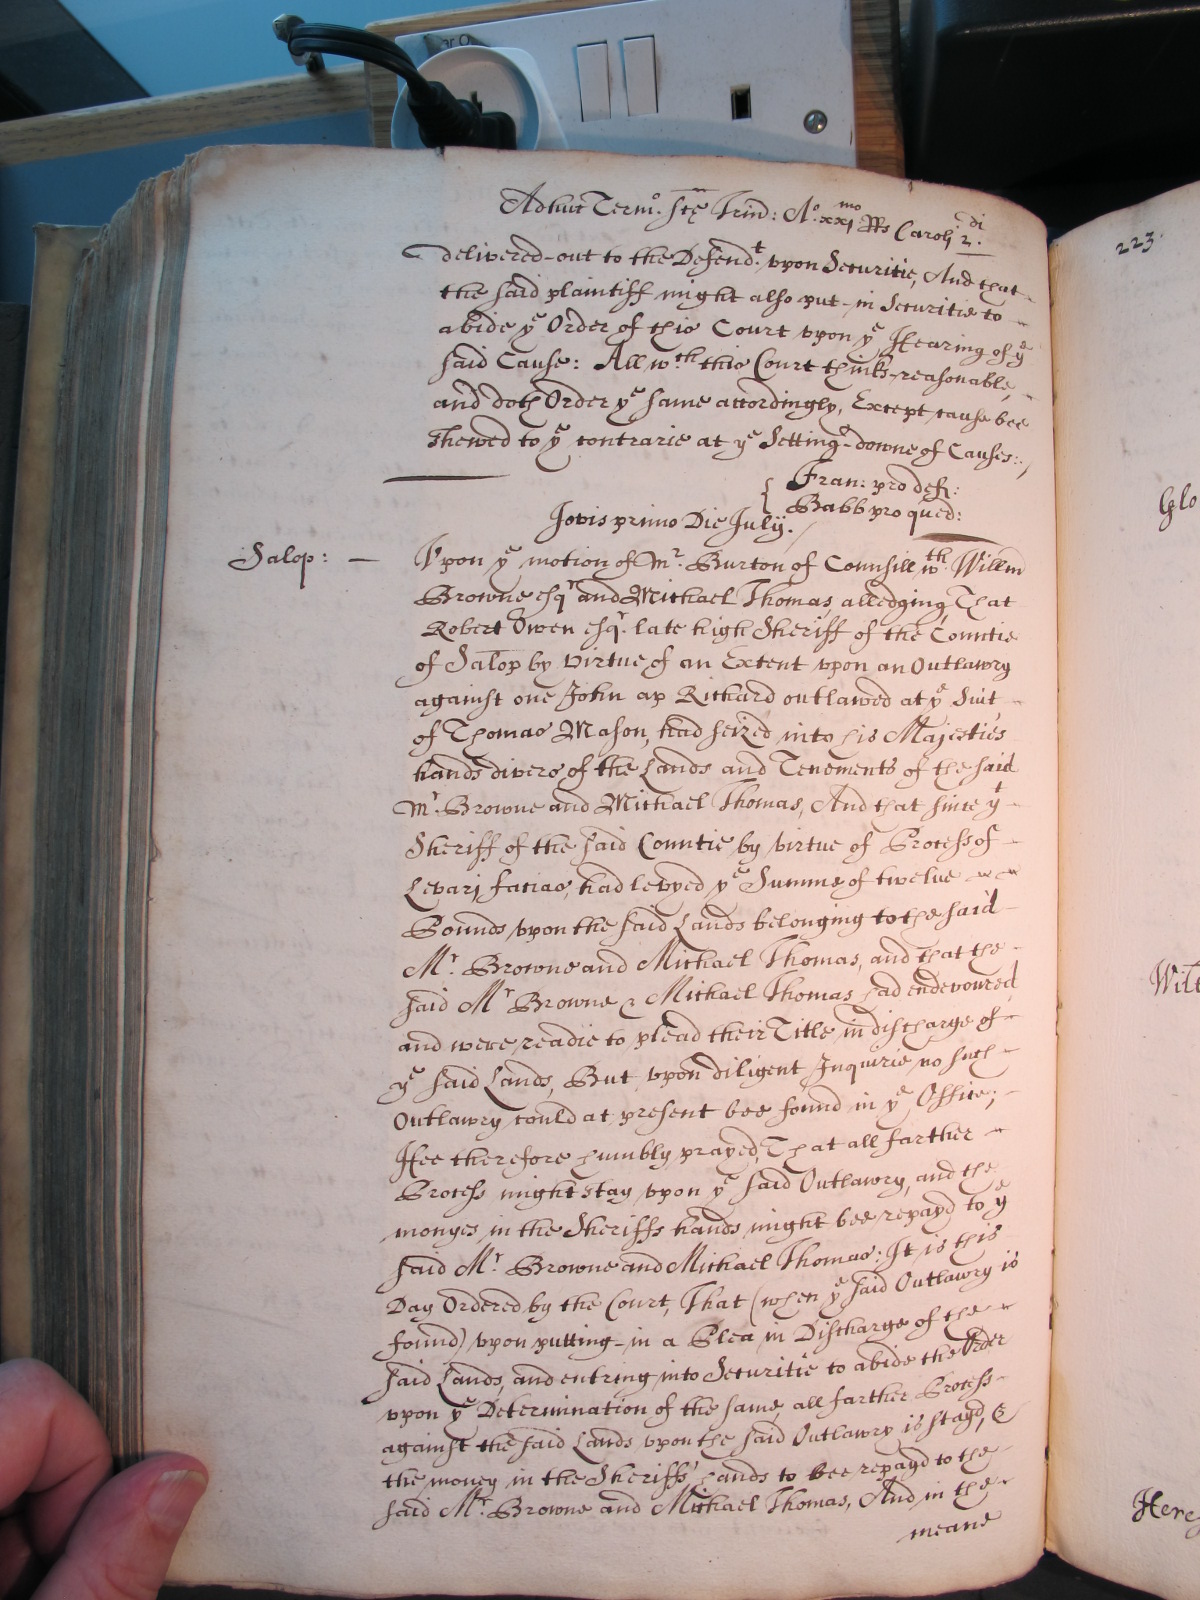 Adhuc Term.º Scte Trin: A.º xxj.mo Rs Caroli 2.di
delivered-out to the Defend.t upon Securitie, And that
the said plaintiff might also put-in Securitie to
abide ye Order of this Court upon ye Hearing of ye
said Cause: All w.th this Court thinks-reasonable,
and doth Order ye same accordingly, Except cause bee
shewed to ye contrarie at ye Setting-downe of Causes:,
Fran: pro def:
Babb pro quer:
Jovis primo Die July.
Salop: —
Upon ye motion of Mr. Burton of Counsill wth. Willm
Browne esqr and Michael Thomas, alledging, That
Robert Owen esqr. late high Sheriff of the Countie
of Salop by virtue of an Extent upon an Outlawry
against one John ap Richard outlawed at ye Suit
of Thomas Mason, had seized into his Majesties
hands divers of the Lands and Tenements of the said
Mr. Browne and Michael Thomas, And that since yt
Sheriff of the said Countie by virtue of Process of
Levari facias, had levyed ye Summe of twelve
Pounds upon the said Lands belonging to the said
Mr. Browne and Michael Thomas, and that the
said Mr Browne & Michael Thomas had endevoured,
and were readie to plead their Title in discharge of
ye said Lands, But upon diligent Inquirie no such
Outlawry could at present bee found in ye Office;
Hee therefore humbly prayed, That all farther
Process might stay upon ye said Outlawry, and the
monyes in the Sheriffs hands might bee repayd to ye
said Mr. Browne and Michael Thomas: It is this
Day Ordered by the Court, That (when ye said Outlawry is
found) upon putting-in a Plea in Discharge of the
said Lands, and entring into Securitie to abide the Order
upon ye Determination of the same, all farther Process
against the said Lands upon the said Outlawry is stayd, &
the money in the Sheriffs' hands to bee repayd to the
said Mr. Browne and Michael Thomas, And in the
meane
223.
Glo
Wilt
Here